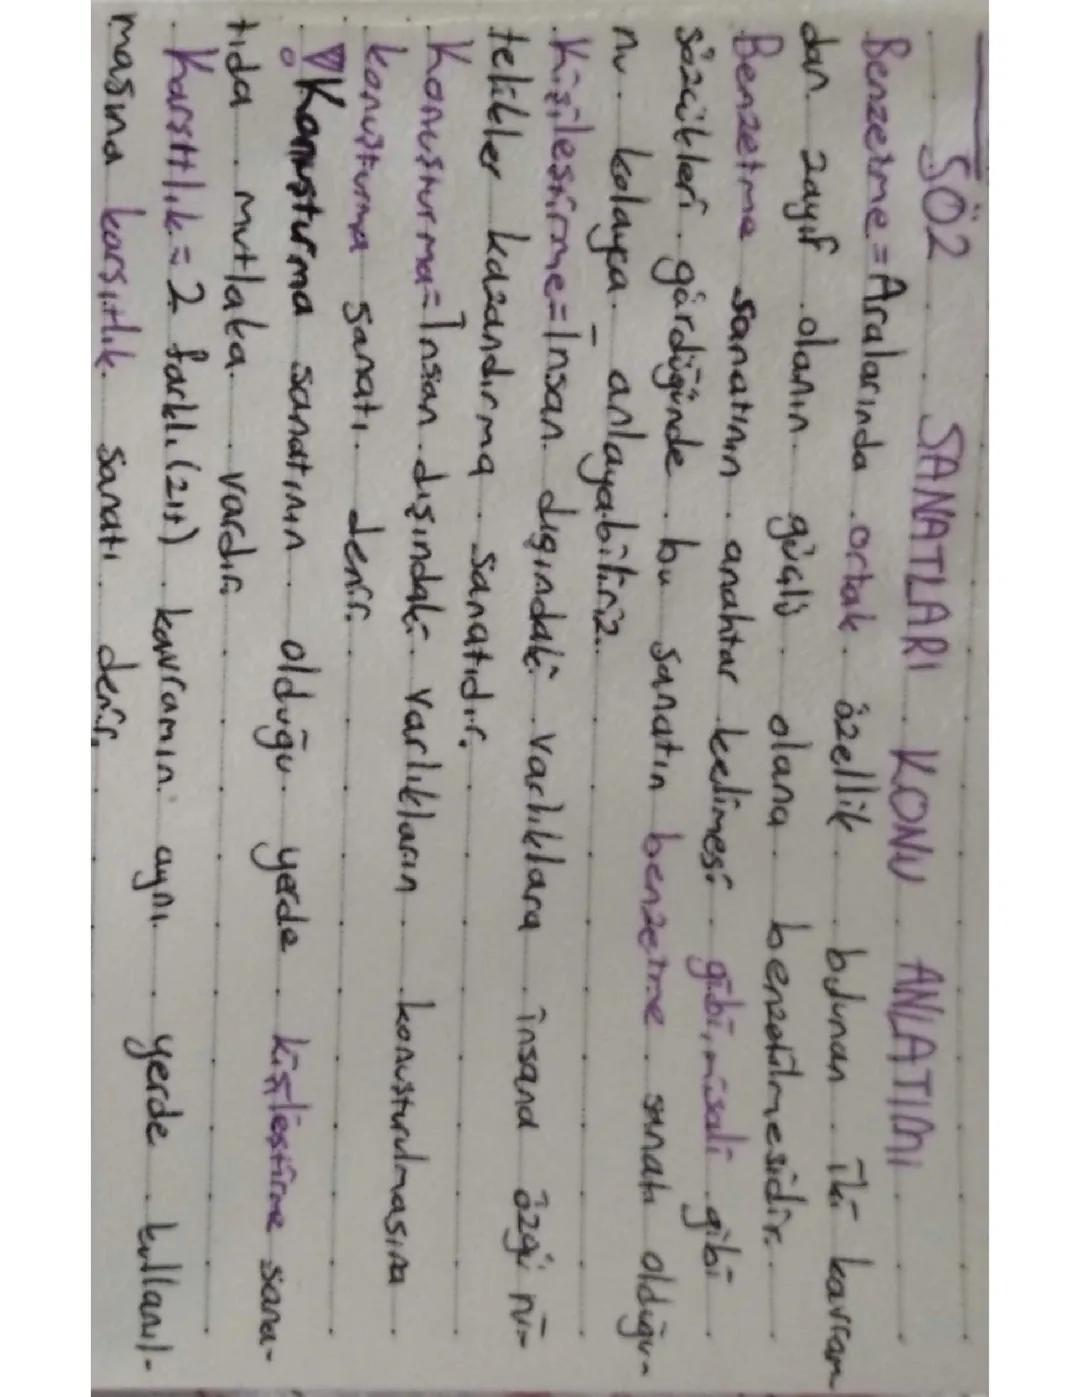 SÖZ SANATLARI KONU ANLATIMI
Benzetme=Aralarında ortak özellik bulunan iki kavram
dan zayıf olanın güçlü olana benzetilmesidir.
Benzetme sanatının anahtar kelimesi gibi, misali gibi
sözcükleri gördüğünde bu sanatın benzetme sanatı olduğu-
nu kolayca anlayabiliriz.
Kişileştirme=İnsan dışındaki varlıklara insana özgü ni-
telikler kazandırma sanatıdır.
Konuşturma=İnsan dışındaki varlıkların konuşturulmasına
konuşturma sanatı denir.
Konuşturma sanatının olduğu yerde kişileştirme sana-
tıda mutlaka vardır.
Karşıtlık=2 farklı (zıt) kavramın aynı yerde kullanıl-
masına karşıtlık sanatı denir.